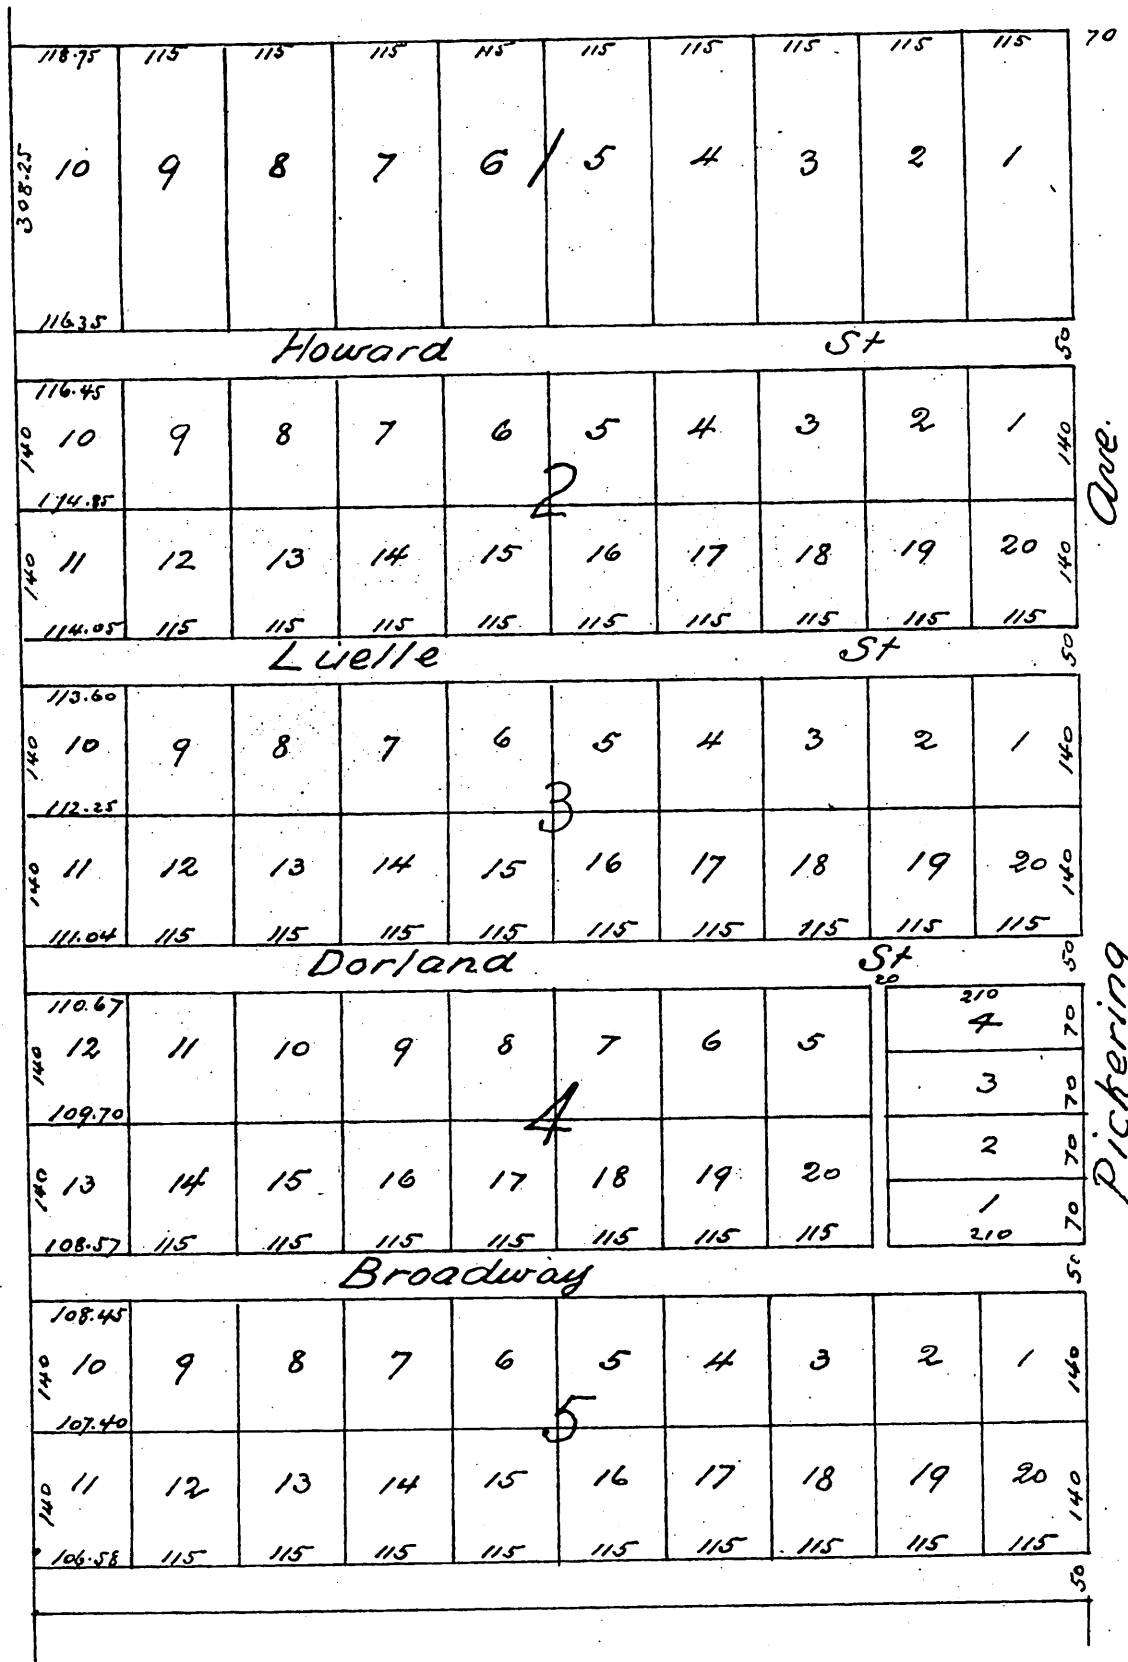 118.75 115 115 115 115 115 115 115 115 115 70
308.25 10 9 8 7 6 1 5 4 3 2 1
116.35
Howard St 50
116.45
140 10 9 8 7 6 5 4 3 2 1 140
114.85 2
140 11 12 13 14 15 16 17 18 19 20 140
114.05 115 115 115 115 115 115 115 115 115
Luelle St 50
113.60
140 10 9 8 7 6 5 4 3 2 1 140
112.25 3
140 11 12 13 14 15 16 17 18 19 20 140
111.04 115 115 115 115 115 115 115 115 115
Dorland St 50
20
110.67 210
140 12 11 10 9 8 7 6 5 4 70
3 70
109.70 4
2 70
140 13 14 15 16 17 18 19 20 1 70
108.57 115 115 115 115 115 115 115 210
Broadway 50
108.45
140 10 9 8 7 6 5 4 3 2 1 140
107.40 5
140 11 12 13 14 15 16 17 18 19 20 140
106.58 115 115 115 115 115 115 115 115 115
50
Pickering Ave.